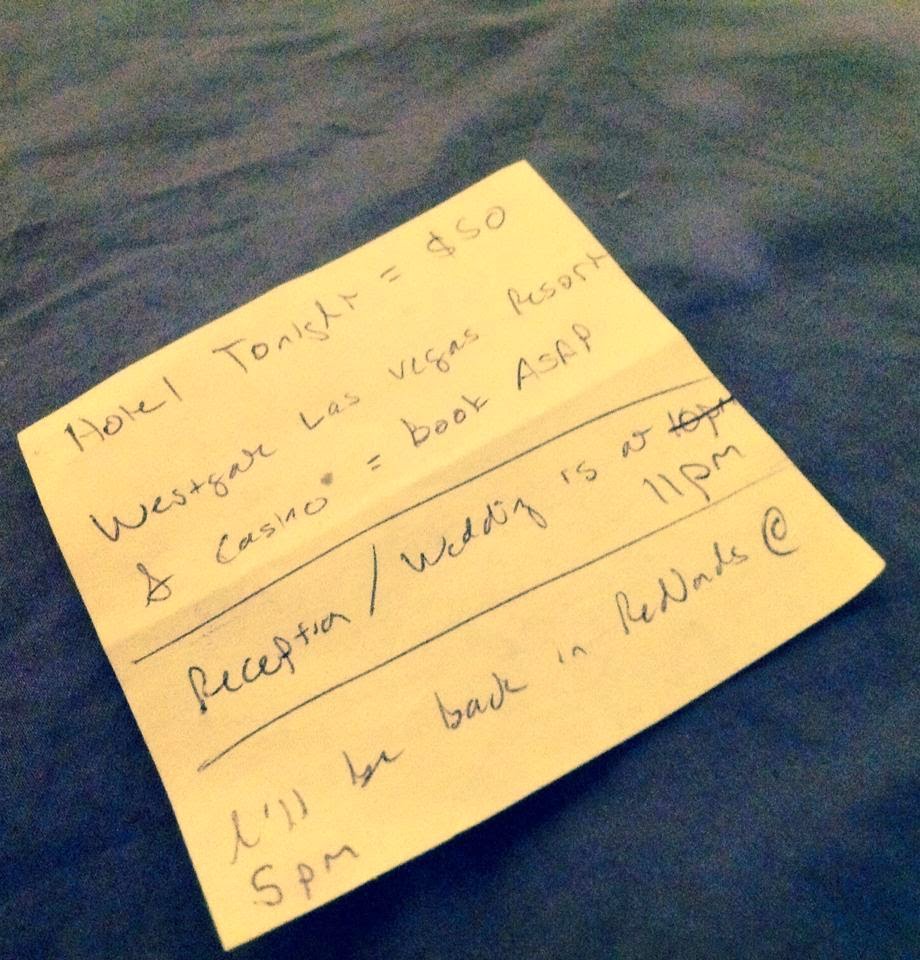 Hotel Tonight = $50
Westgate Las Vegas Resort
& Casino = book ASAP
Reception / Wedding is at 10pm
11pm
I'll be back in Redlands @
5pm